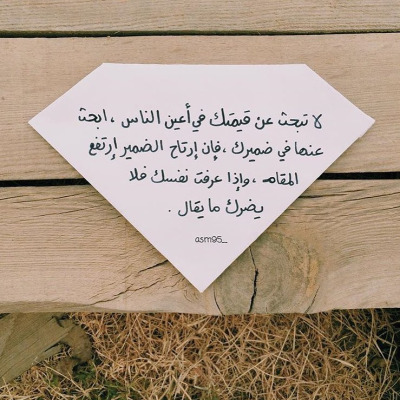 لا تبحث عن قيمتك في أعين الناس ، ابحث
عنها في ضميرك ، فإن إرتاح الضمير ارتفع
المقام ، وإذا عرفت نفسك فلا
يضرك ما يقال .
asm95_